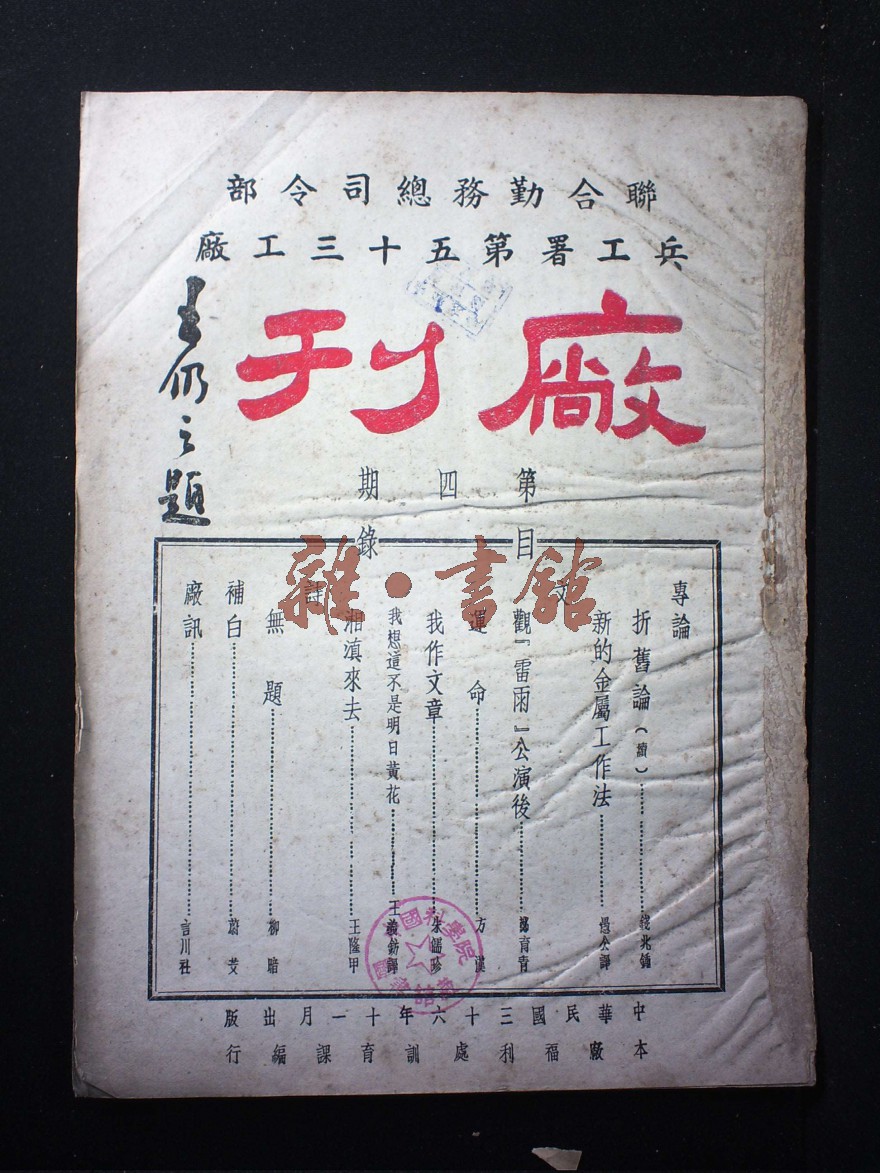 聯合勤務總司令部
兵工署第五十三工廠
廠刊
王仍之題
第四期
目錄
專論
折舊論（續）……錢兆鍾
新的金屬工作法……愚公譯
文
觀『雷雨』公演後……育青
運命……方漢
我作文章……朱儒珍
我想這不是明日黃花……王譯
詩
湘滇來去……王隆甲
無題……柳暗
補白……蔚芠
廠訊……言川社
中華民國三十六年十一月出版
本廠福利處訓育課編行
雜·書館
國科學院